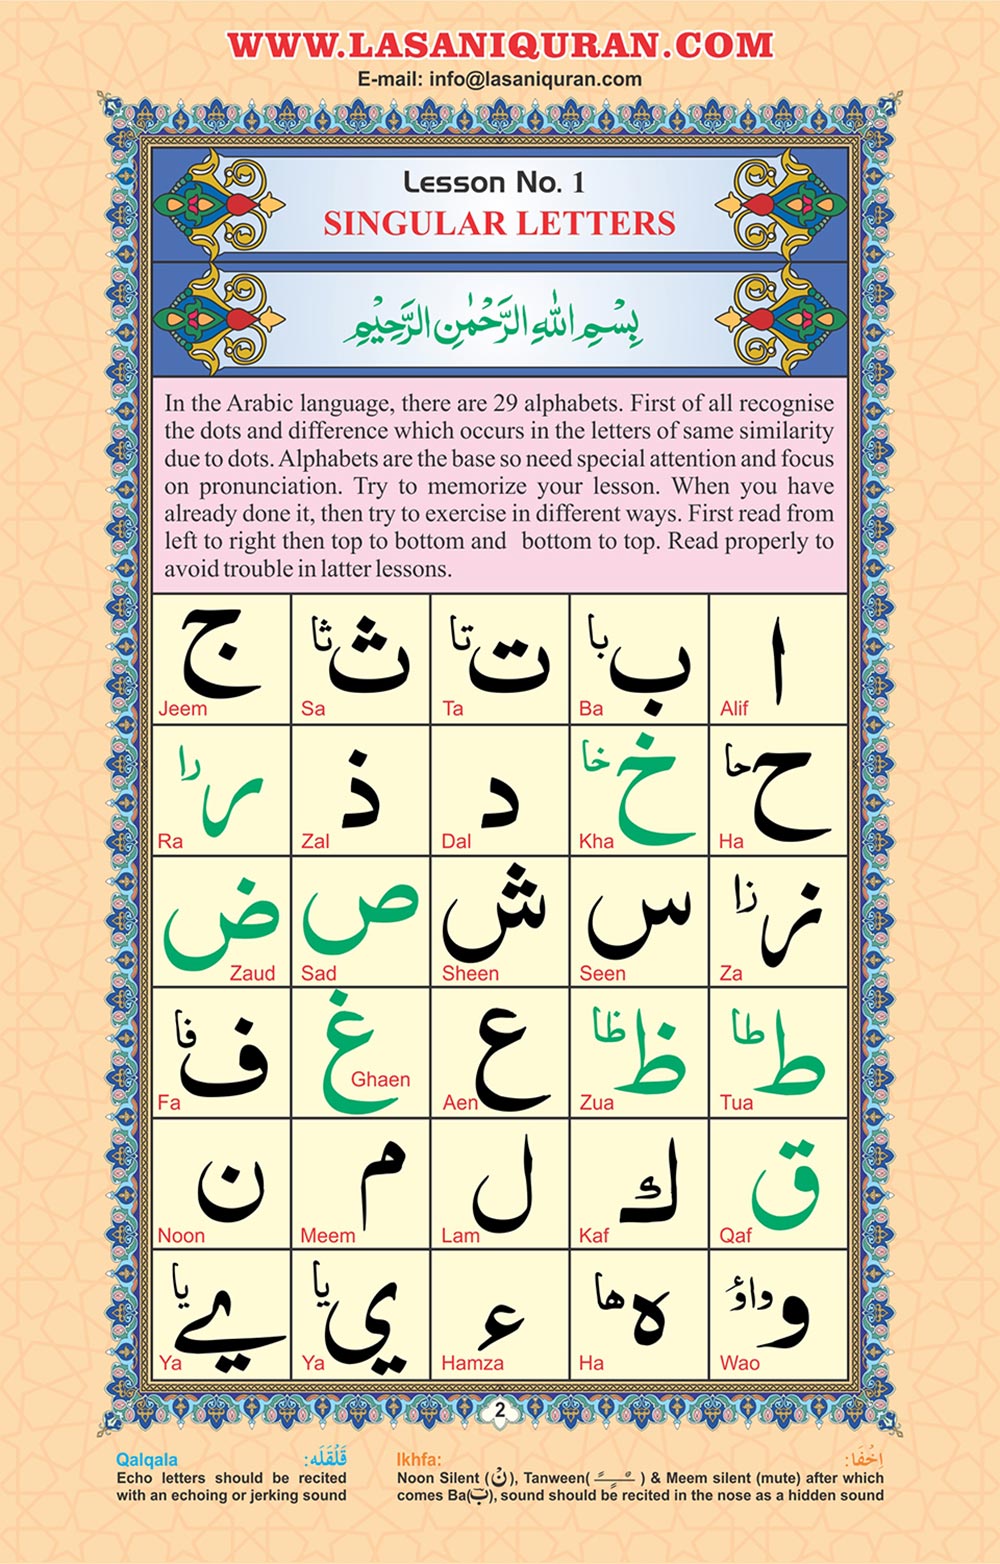 WWW.LASANIQURAN.COM
E-mail: info@lasaniquran.com
Lesson No. 1
SINGULAR LETTERS
بِسْمِ اللهِ الرَّحْمٰنِ الرَّحِيْمِ
In the Arabic language, there are 29 alphabets. First of all recognise
the dots and difference which occurs in the letters of same similarity
due to dots. Alphabets are the base so need special attention and focus
on pronunciation. Try to memorize your lesson. When you have
already done it, then try to exercise in different ways. First read from
left to right then top to bottom and bottom to top. Read properly to
avoid trouble in latter lessons.
ا ب با ت تا ث ثا ج
Alif Ba Ta Sa Jeem
ح حا خ خا د ذ ر را
Ha Kha Dal Zal Ra
ز زا س ش ص ض
Za Seen Sheen Sad Zaud
ط طا ظ ظا ع غ ف فا
Tua Zua Aen Ghaen Fa
ق ك ل م ن
Qaf Kaf Lam Meem Noon
و واؤ ه ها ء ي يا ے يا
Wao Ha Hamza Ya Ya
2
Qalqala قَلْقَلَه:
Echo letters should be recited
with an echoing or jerking sound
Ikhfa: اِخْفَا:
Noon Silent (نْ), Tanween( ــًــٍــٌ ) & Meem silent (mute) after which
comes Ba(ب), sound should be recited in the nose as a hidden sound